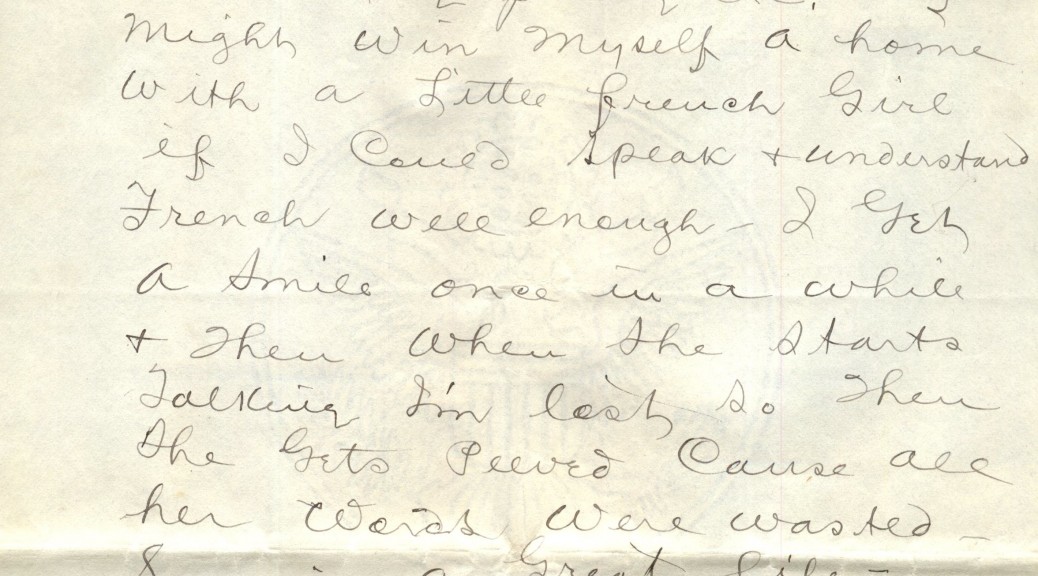 Might win myself a home
With a Little french Girl
if I Could Speak + understand
French well enough - I Get
a Smile once in a while
+ Then When She Starts
Talking I'm lost, So Then
She Gets Peeved Cause all
her Words Were wasted -
a Great Life -